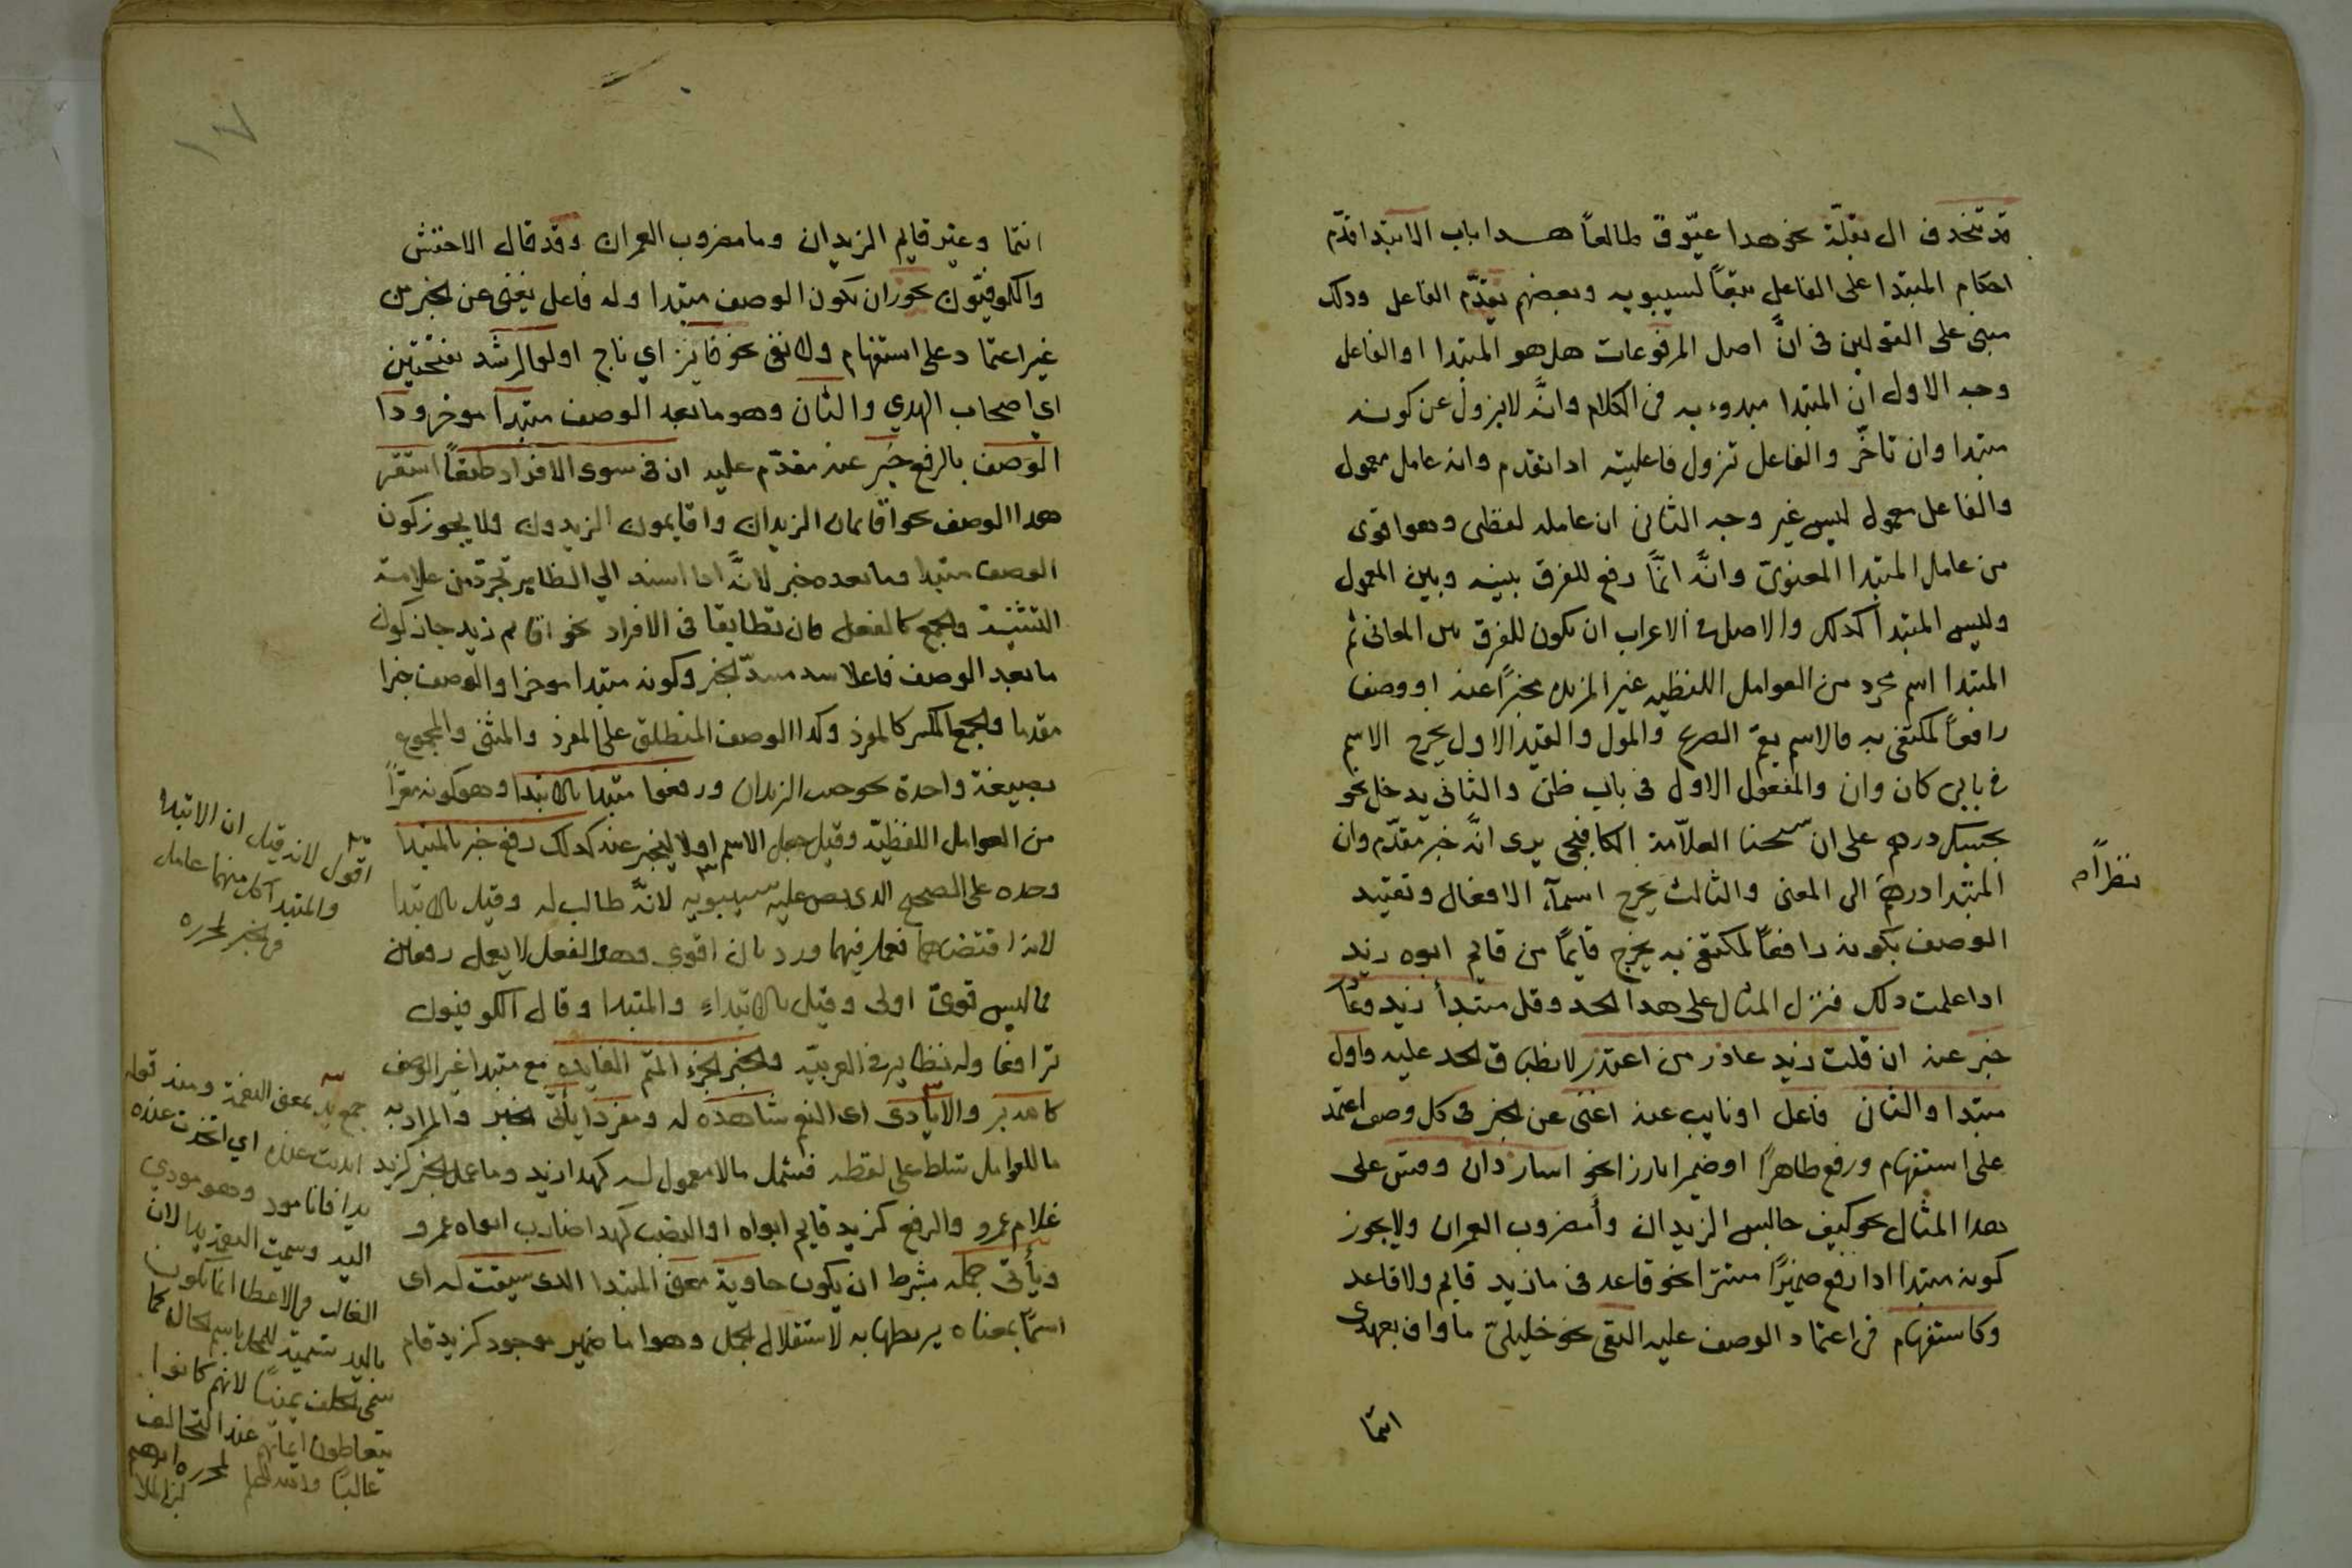 قد تنحذف ال بقلة نحو هذا عيّوق طالعاً هـــذا باب الابتدا قدّم
احكام المبتدا على الفاعل تبعاً لسيبويه وبعضهم يقدّم الفاعل وذلك
مبنى على القولين فى انّ اصل المرفوعات هل هو المبتدا او الفاعل
وجه الاول ان المبتدا مبدوء به فى الكلام وانّه لا يزول عن كونه
مبتدا وان تاخّر والفاعل تزول فاعليته اذا تقدم وانه عامل معمول
والفاعل معمول ليس غير وجه الثانى ان عامله لفظى وهو اقوى
من عامل المبتدا المعنوىّ وانّه انّما رفع للفرق بينه وبين المفعول
وليس المبتدا كذلك والاصل فى الاعراب ان يكون للفرق بين المعانى ثم
المبتدا اسم مجرد من العوامل اللفظيه غير المزيده مخبراً عنه او وصف
رافعاً لمكتفى به فالاسم يعمّ الصريح والمؤل والقيد الاول يخرج الاسم
فى بابى كان وان والمفعول الاول فى باب ظنّ والثانى يدخل نحو
بحسبك درهم على ان شيخنا العلاّمة الكافيجى يرى انّه خبر مقدّم وان
المبتدا درهم نظراً الى المعنى والثالث يخرج اسمآء الافعال وتقييد
الوصف بكونه رافعاً لمكتفى به يخرج قايماً من قايم ابوه زيد
اذا علمت ذلك فنزل المثال على هذا الحد وقل مبتدأ زيد وعاذر
خبر عنه ان قلت زيد عاذر من اعتذر لانطباق الحد عليه واول
مبتدا والثان فاعل او نايب عنه اغنى عن الخبر فى كل وصف اعتمد
على استفهام ورفع ظاهراً او ضميرا بارزا نحو اسار ذان وقس على
هذا المثال نحو كيف جالس الزيدان وأمضروب العمران ولا يجوز
كونه مبتدا اذا رفع ضميرًا مستترا نحو قاعد فى ما زيد قايم ولا قاعد
وكاستفهام فى اعتماد الوصف عليه النفى نحو خليلىّ ما واف بعهدى
انتما
انتما وغير قايم الزيدان وما مضروب العمران وقد قال الاخفش
والكوفيّون يجوز ان يكون الوصف مبتدا وله فاعل يغنى عن الخبر من
غير اعتماد على استفهام ولا نفى نحو فايز اي ناج اولوا الرشد بفتحتين
اي اصحاب الهدي والثان وهو ما بعد الوصف مبتدا موخر وذا
الوصف بالرفع خبر عنه مقدّم عليه ان فى سوى الافراد طبقاً استقر
هذا الوصف نحو اقايمان الزيدان واقايمون الزيدون ولا يجوز كون
الوصف مبتدا وما بعده خبر لانّه اذا اسند الي الظاهر تجرّد من علامة
التثنية والجمع كالفعل فان تطابقا فى الافراد نحو اقايم زيد جاز كون
ما بعد الوصف فاعلا سد مسدّ الخبر وكونه مبتدا موخرا والوصف خبرا
مقدما والجمع المكسر كالمفرد وكذا الوصف المنطلق على المفرد والمثنى والمجموع
بصيغة واحدة نحو جنب الزيدان ورفعوا مبتدا بالابتدا وهو كونه معرّاً
من العوامل اللفظيّة وقيل جعل الاسم اولا ليخبر عنه كذلك رفع خبر بالمبتدا
وحده على الصحيح الذى نص عليه سيبويه لانّه طالب له وقيل بالابتدا
لانه اقتضاهما فعمل فيهما ورد بان اقوى وهو الفعل لا يعمل رفعين
فما ليس قوىّ اولى وقيل بالابتداء والمبتدا وقال الكوفيون
ترافعا وله نظاير فى العربيّة والخبر الجزء المتم الفايده مع مبتدا غير الوصف
كالله بر والايادى اى النعم شاهده له ومفردا يأتى الخبر والمراد به
ما للعوامل تسلط على لفظه فيشمل ما لا معمول له كهذا زيد وما عمل الجر كزيد
غلام عمرو والرفع كزيد قايم ابواه او النصب كهذا ضارب ابواه عمرو
ويأتى جمله بشرط ان يكون حاوية معنى المبتدا الذى سيقت له اى
اسمًا بمعناه يربطها به لاستقلال الجمل وهو اما ضمير موجود كزيد قام
نظراً م
اقول لانه قيل ان الابتدا
والمبتدا كل منهما عامل
فى الخبر لمحرره
جمع يد بمعنى النعمة ومنه قوله
ايديت عنده اي اتخذت عنده
يدا فانا مود وهو مودي
اليه وسميت النعمة يدا لان
الغالب فى الاعطا انما يكون
باليد تسمية للحال باسم المحال كما
سمى الحلف يمينًا لانهم كانوا
يتعاطون ايمانهم عند التحالف
غالبًا والله اعلم لمحرره ابرهيم